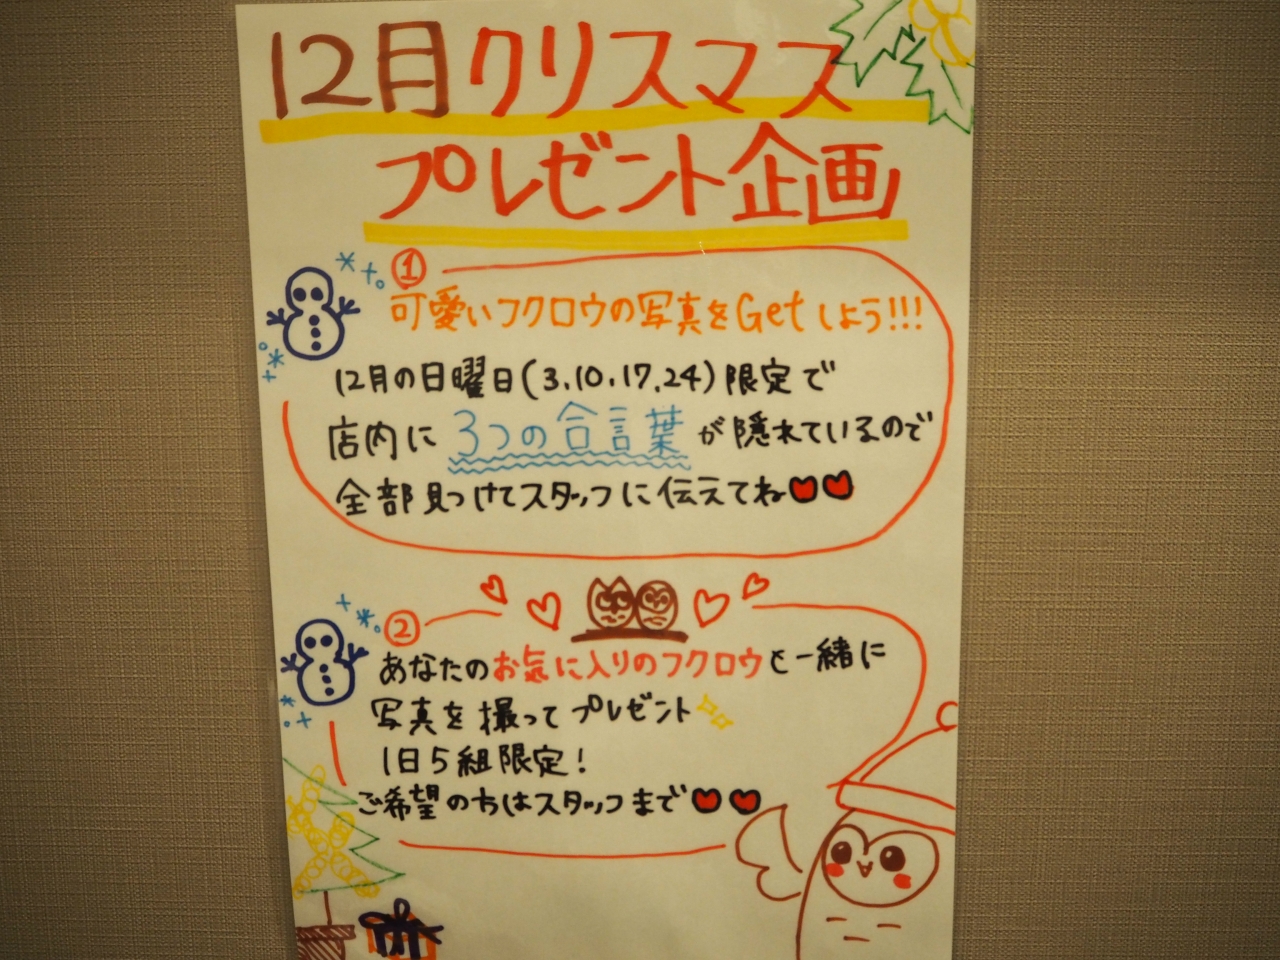 12月クリスマス
プレゼント企画
①
可愛いフクロウの写真をGetしよう!!!
12月の日曜日(3.10.17.24)限定で
店内に3つの合言葉が隠れているので
全部見つけてスタッフに伝えてね
②
あなたのお気に入りのフクロウと一緒に
写真を撮ってプレゼント
1日5組限定!
ご希望の方はスタッフまで